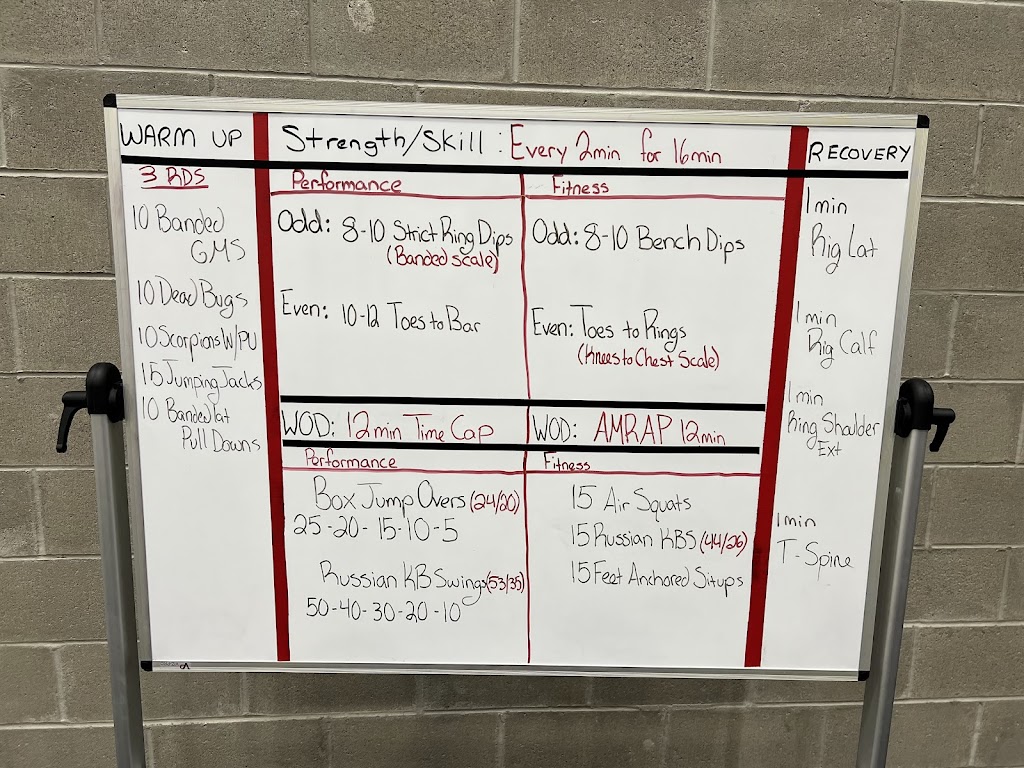 WARM UP
3 RDS
10 Banded
GMS
10 Dead Bugs
10 Scorpions W/PU
15 Jumping Jacks
10 Banded Lat
Pull Downs
Strength/Skill: Every 2min for 16min
Performance
Odd: 8-10 Strict Ring Dips
(Banded scale)
Even: 10-12 Toes to Bar
Fitness
Odd: 8-10 Bench Dips
Even: Toes to Rings
(Knees to Chest Scale)
WOD: 12min Time Cap
Performance
Box Jump Overs (24/20)
25-20-15-10-5
Russian KB Swings (53/35)
50-40-30-20-10
WOD: AMRAP 12min
Fitness
15 Air Squats
15 Russian KBS (44/26)
15 Feet Anchored Situps
RECOVERY
1min
Rig Lat
1min
Rig Calf
1min
Ring Shoulder
Ext
1min
T-Spine